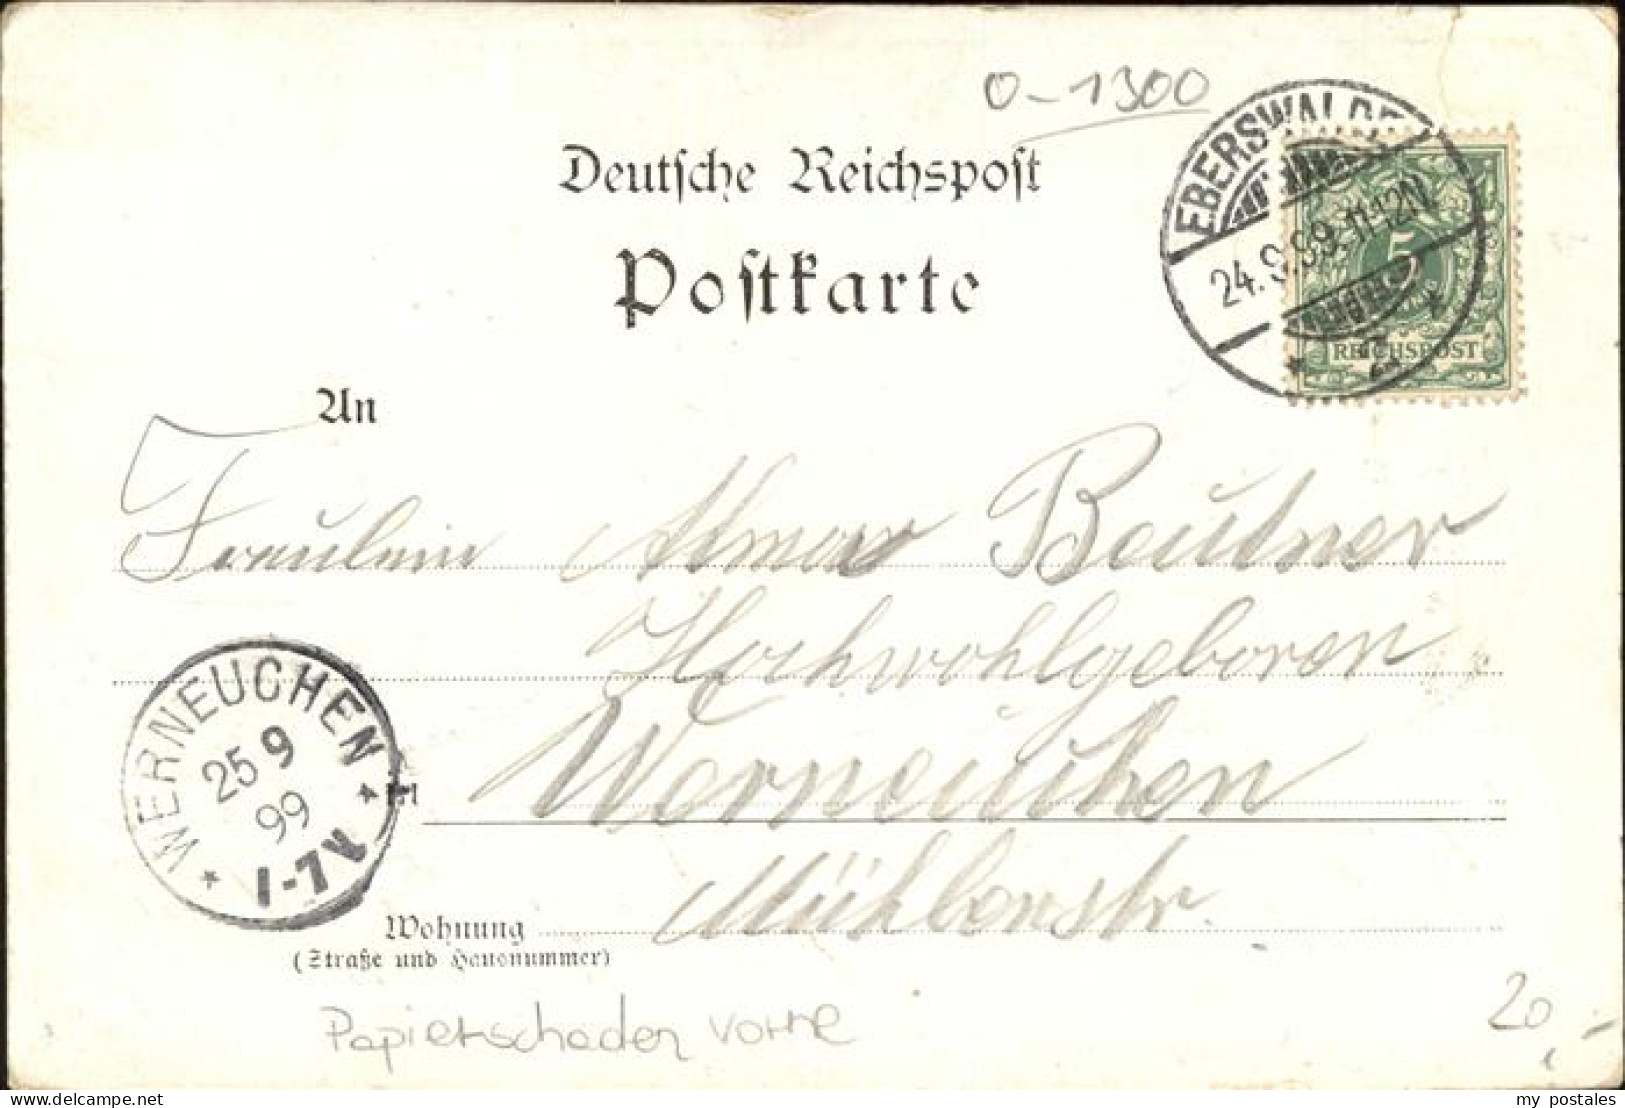 0-1300
Deutsche Reichspost
Postkarte
EBERSWALDE
24.9.99.11-12N
* 2 *
5
REICHSPOST
An
Fräulein Beutner
Hochwohlgeboren
Werneuchen
Mühlenstr.
WERNEUCHEN
25 9
99
1-7V
Wohnung
(Straße und Hausnummer)
Papierschaden vorne
20,-
www.delcampe.net
my_postales